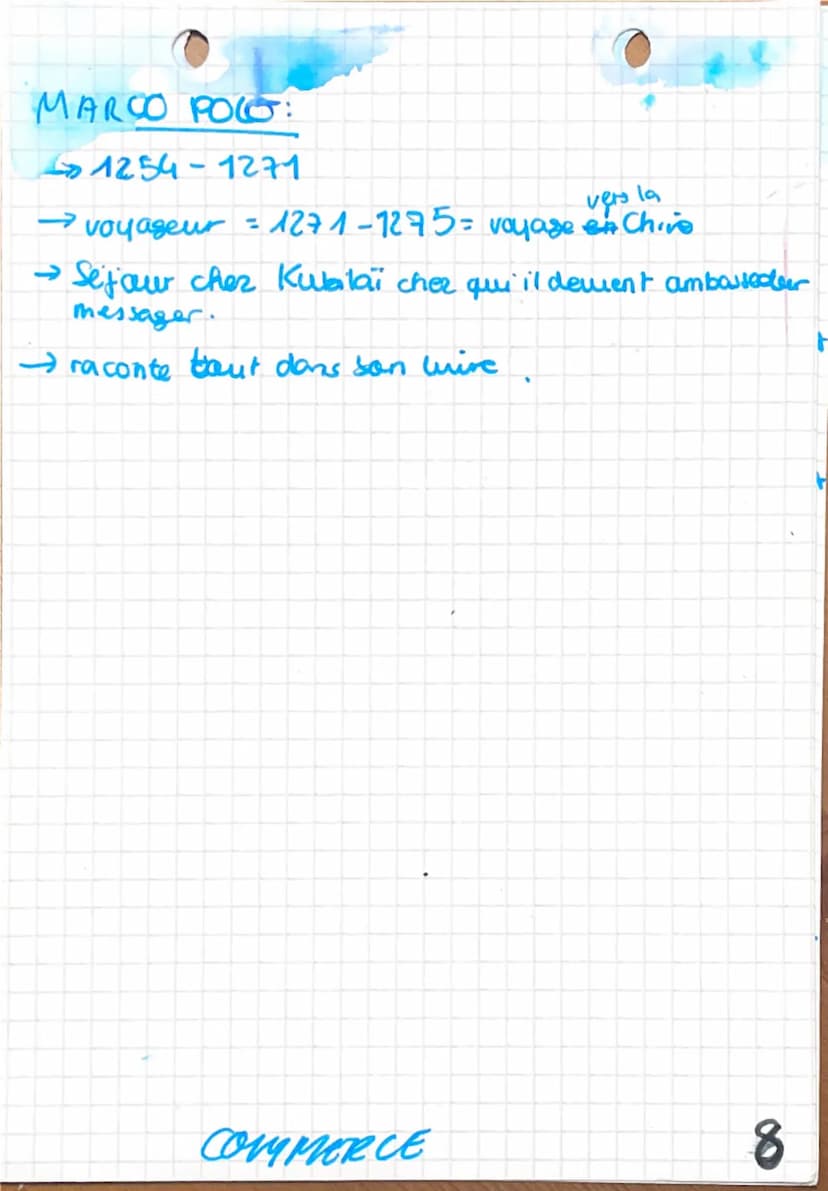 MARCO POLO:
→ 1254 - 1271
→ voyageur = 1271-1275 = voyage en vers la Chine
→ Séjour chez Kubilaï chez qui il devient ambassadeur
messager.
→ raconte tout dans son livre.
COMMERCE
8